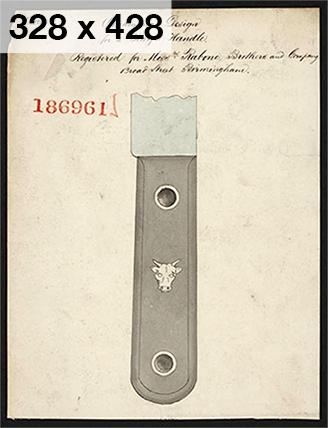 328 x 428
Design
for Handle.
Registered for Messrs Rabone, Brothers and Company
Broad Street Birmingham.
186961